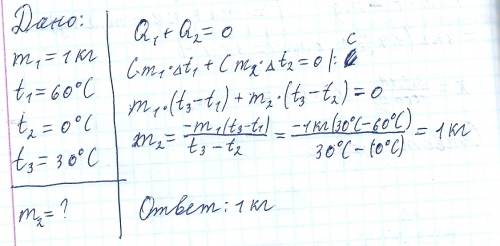 Дано:
m₁ = 1 кг
t₁ = 60°C
t₂ = 0°C
t₃ = 30°C
m₂ = ?
Q₁ + Q₂ = 0
Cm₁·Δt₁ + Cm₂·Δt₂ = 0 |: C
m₁·(t₃-t₁) + m₂·(t₃-t₂) = 0
m₂ = -m₁(t₃-t₁) / t₃-t₂ = -1кг(30°C-60°C) / 30°C-(0°C) = 1кг
Ответ: 1кг